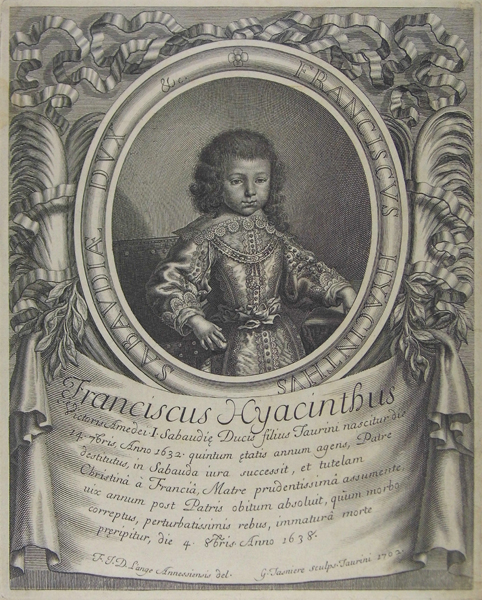 FRANCISCVS HYACINTHVS SABAVDIÆ DVX &c.
Franciscus Hyacinthus
Victoris Amedei·I·Sabaudię Ducis filius Taurini nascitur die
14·7bris Anno 1632· quintum ętatis annum agens, Patre
destitutus, in Sabauda iura successit, et tutelam
Christina à Francia, Matre prudentissimâ assumente,
uix annum post Patris obitum absoluit, quum morbo
correptus, perturbatissimis rebus, immaturâ morte
pręripitur, die 4· 8bris Anno 1638·
F.I.D. Lange Annessiensis del·
G·Tasniere sculps·Taurini 1702